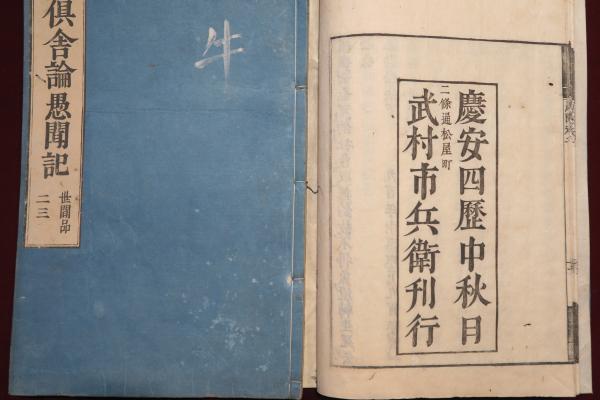 倶舎論愚聞記
世間品
二三
牛
慶安四歷中秋日
二條通松屋町
武村市兵衛刊行